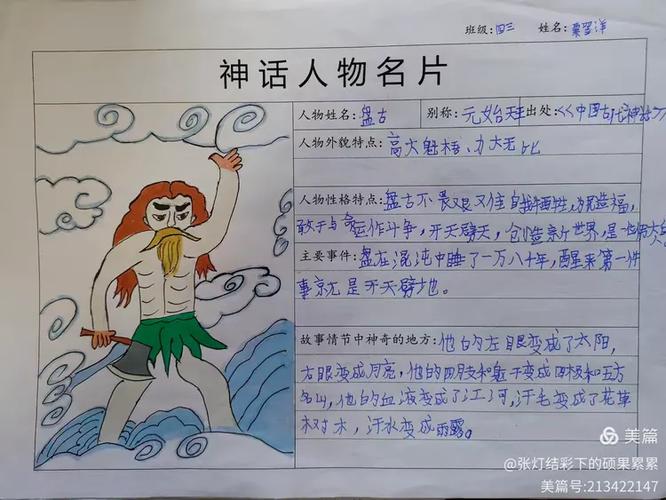 班级:四三 姓名:
神话人物名片
人物姓名:盘古 别称:元始天王 出处:《中国古代神话》
人物外貌特点:高大魁梧、力大无比
人物性格特点:盘古不畏艰又佳自我牺牲,为民造福,
敢于与命运作斗争,开天劈天,创造新世界,是一
主要事件:盘在混沌中睡了一万八千年,醒来第一件
事就是开天劈地。
故事情节中神奇的地方:他的左眼变成了太阳,
右眼变成月亮,他的四肢和躯干变成四极和五方
名山,他的血液变成了江河,汗毛变成了花草
树木,汗水变成雨露。
美篇
@张灯结彩下的硕果累累
美篇号:213422147